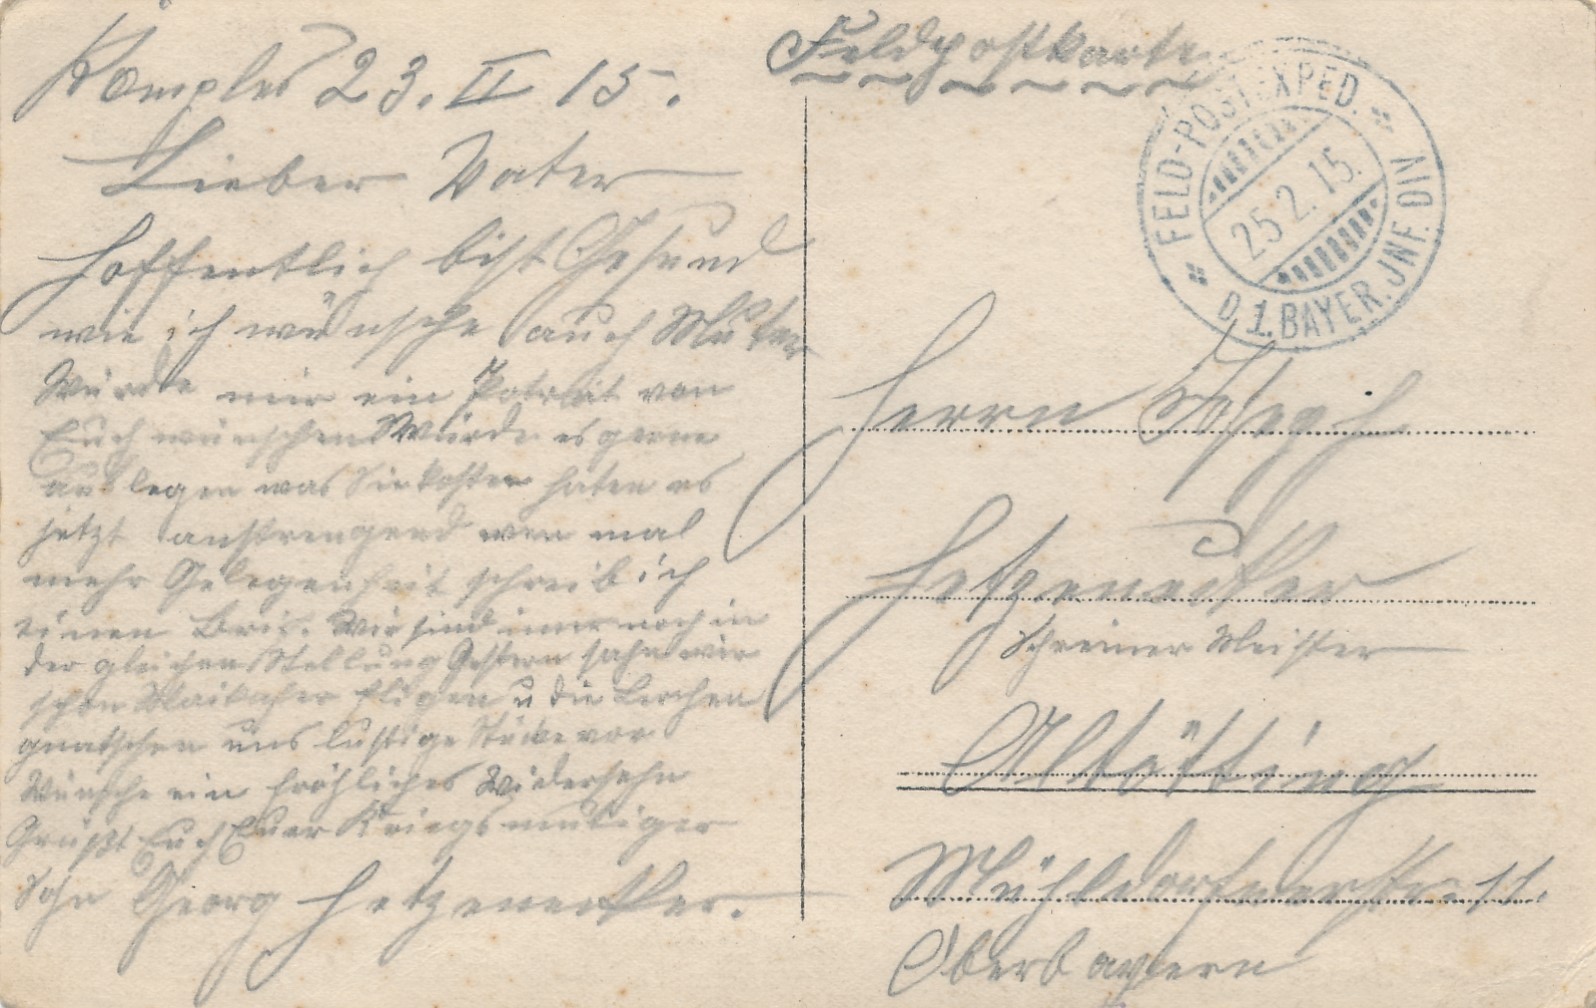 Komples 23. II 15.
Lieber Vater
Hoffentlich bist Gesund
wie ich wünsche auch Muter
Würde mir ein Potrait von
Euch wünschen Würde es gerne
auslegen was Sie kosten haten es
jetzt anstrengend wen mal
mehr Gelegenheit schreib ich
einen Brif. Wir sind imer noch in
der gleichen Stellung Gestern sahn wir
schon Maikäfer fligen u die Lerchen
quatschen uns lustige Stücke vor
Wünsche ein fröhliches Widersehn
Grüßt Euch Euer Kriegsmutiger
Sohn Georg Hetzenecker.
Feldpostkarte
FELD-POSTEXPED.
25 2. 15.
D. 1. BAYER. JNF. DIV
Herrn
Hetzenecker
Schreiner Meister
Altötting
Mühldorfnerstr. 11.
Oberbayern